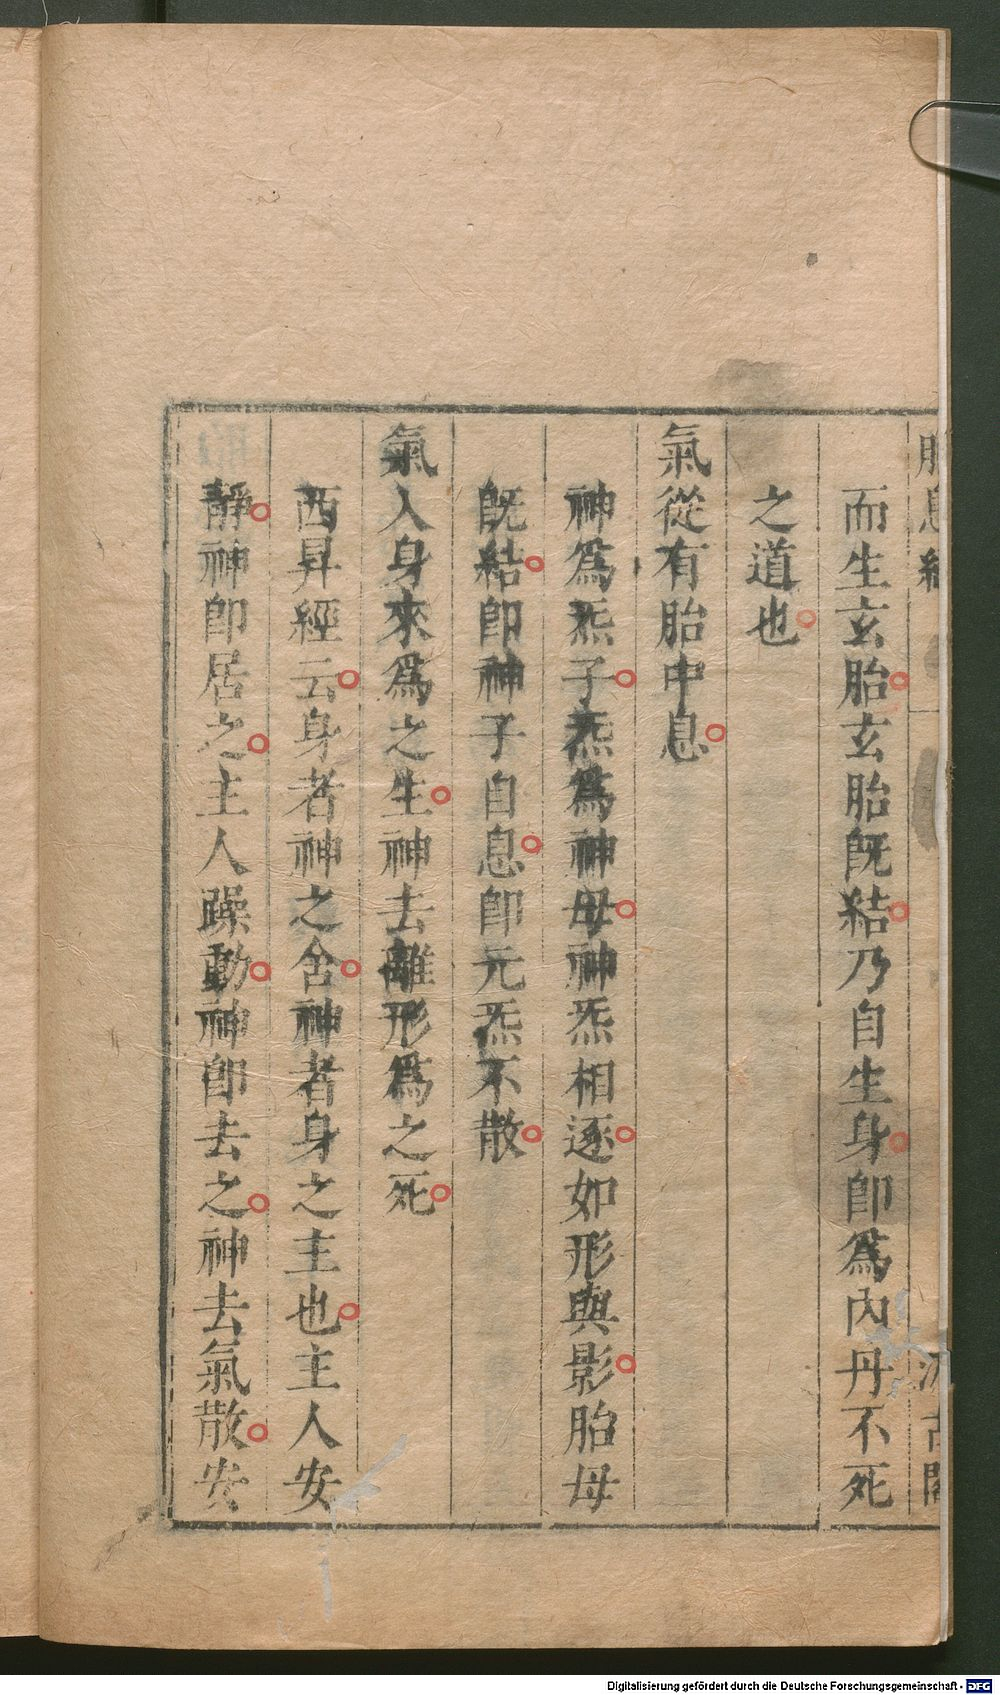 胎息經 汲古閣
而生玄胎玄胎既結乃自生身即為內丹不死
之道也
氣從有胎中息
神為炁子炁為神母神炁相逐如形與影胎母
既結即神子自息即元炁不散
氣入身來為之生神去離形為之死
西昇經云身者神之舍神者身之主也主人安
靜神即居之主人躁動神即去之神去氣散安
Digitalisierung gefördert durch die Deutsche Forschungsgemeinschaft - DFG